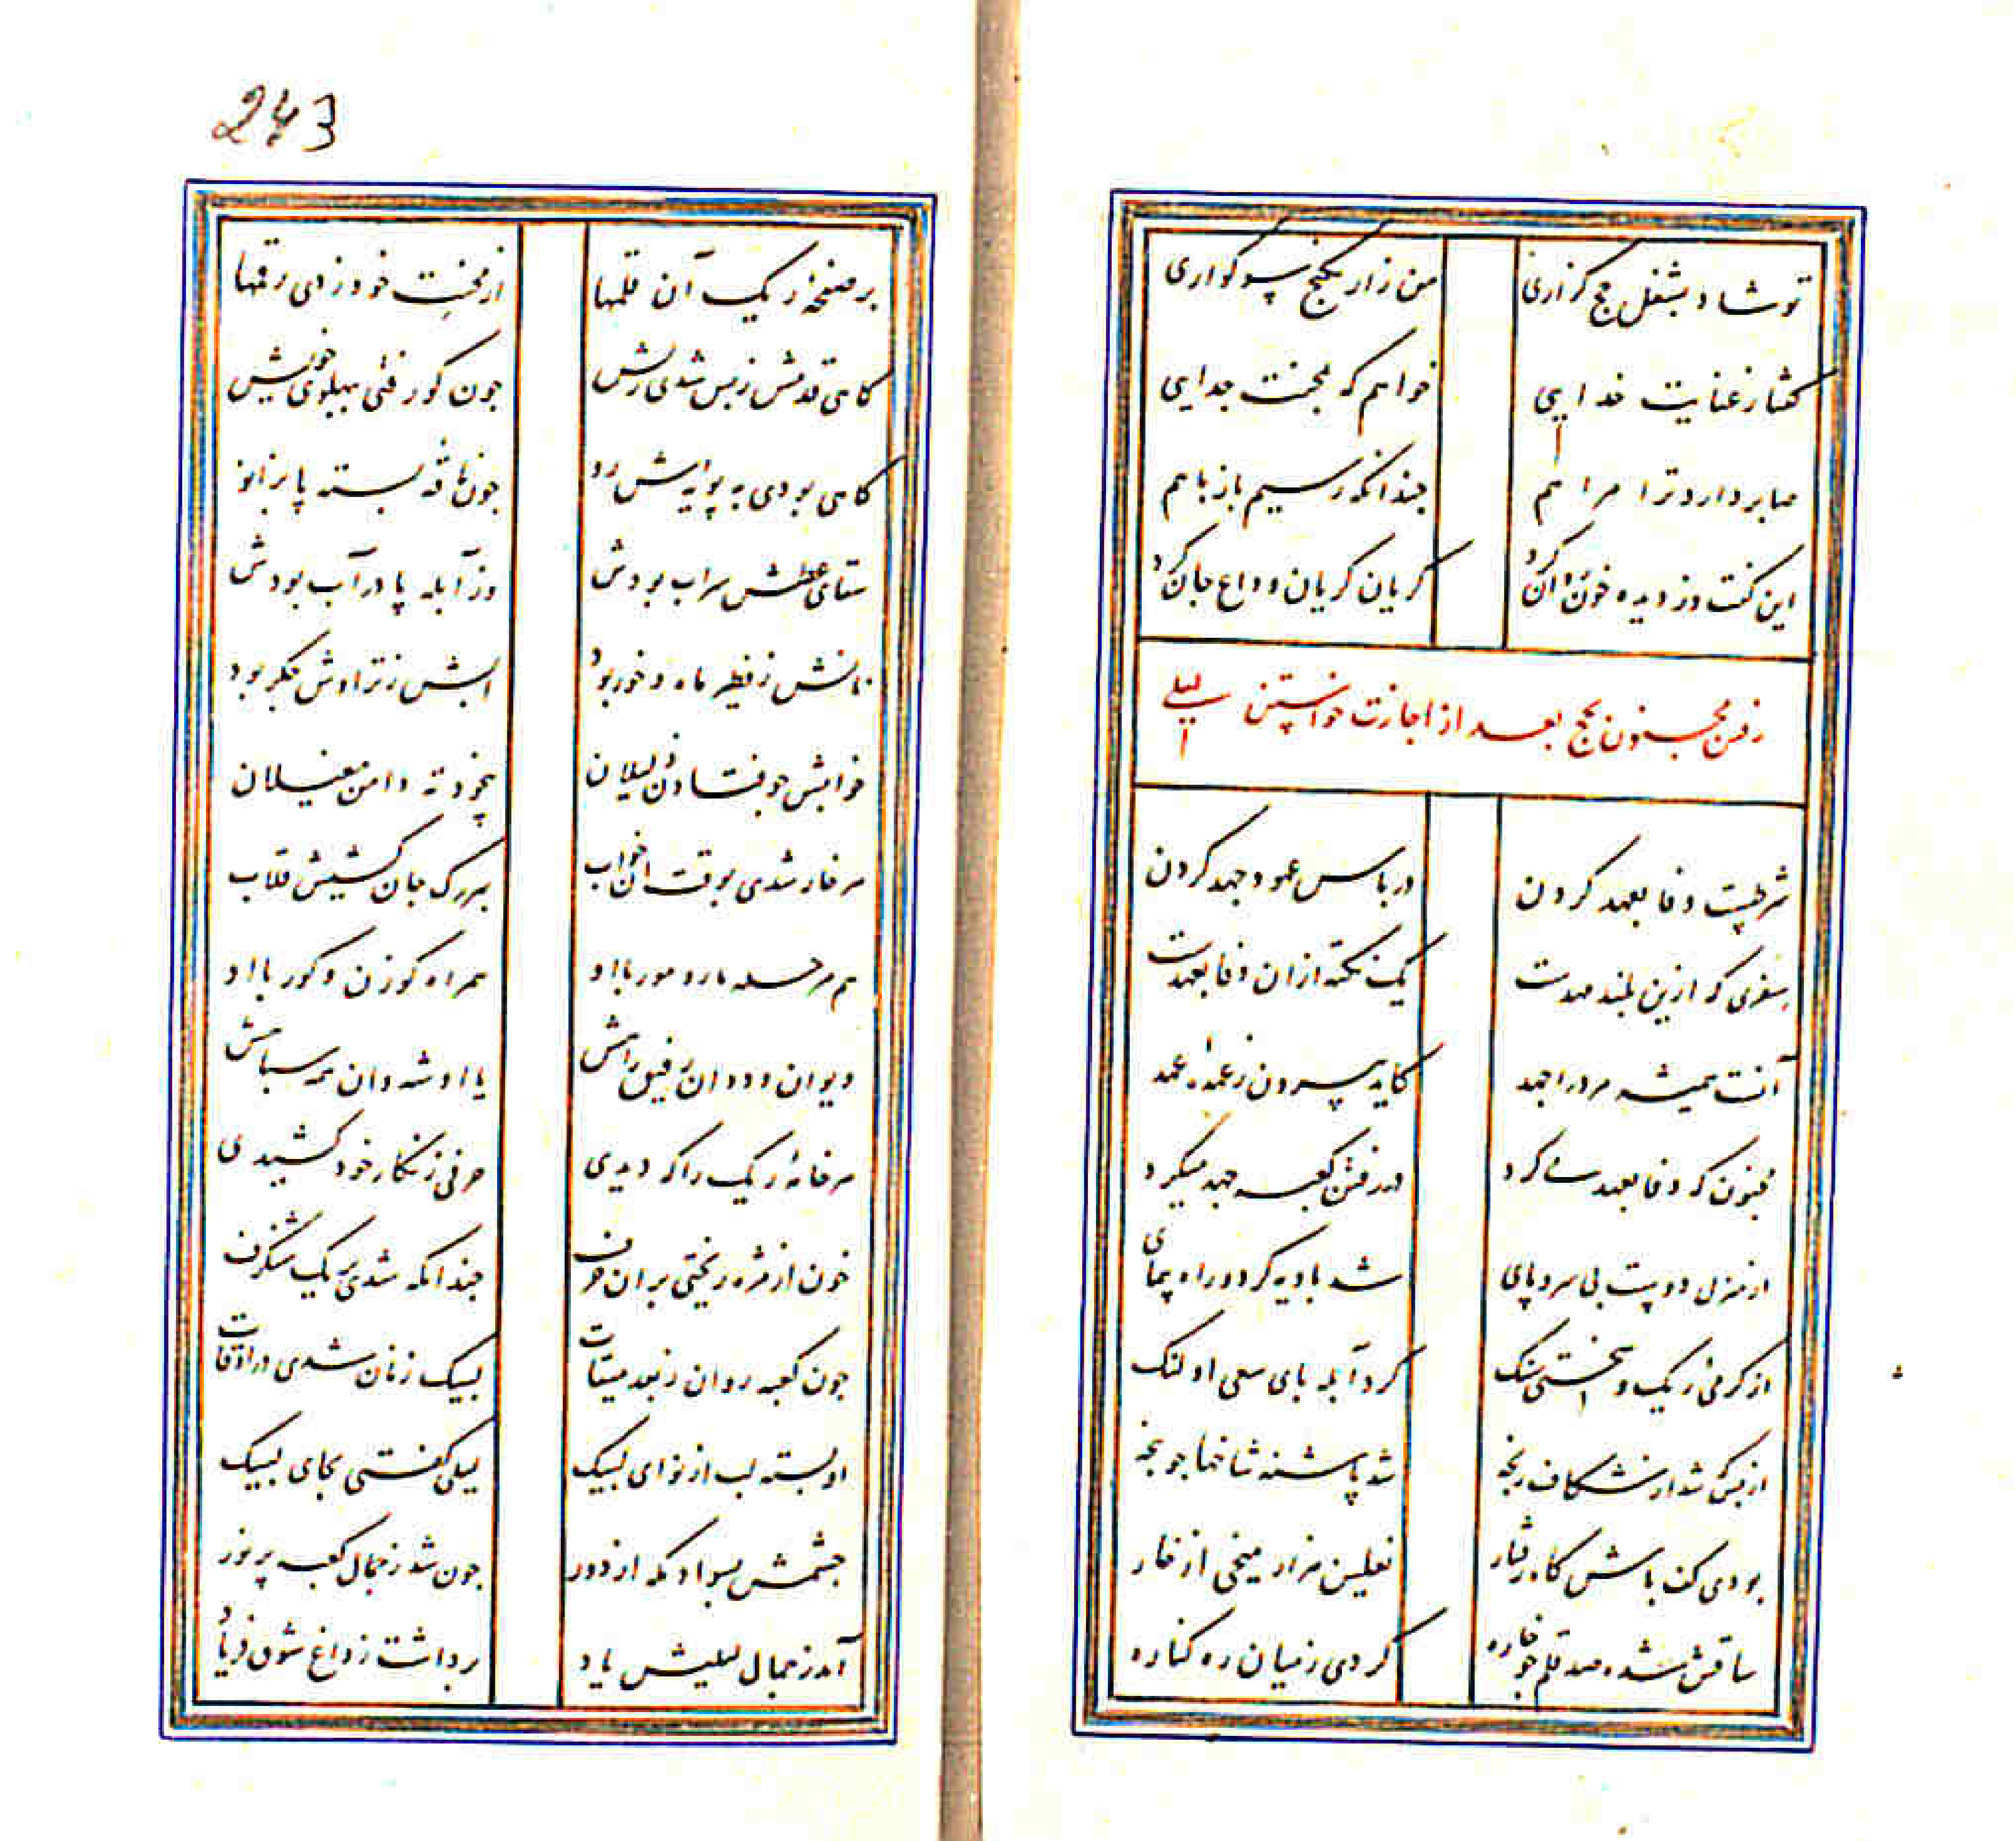 243
تو شاد بشغل حج گزاری من زار بکنج سوگواری
گفتا ز عنایت خدایی خواهم که بمحنت جدایی
صابر دارد ترا مرا هم چندانکه رسیم باز با هم
این گفت وز دیده خون روان کرد گریان گریان وداع جان کرد
رفتن مجنون بحج بعد از اجازت خواستن از لیلی
شرطیست وفا بعهد کردن در پاس عهود جهد کردن
سفری که ازین بلند مهدست یک نکته ازان وفا بعهدست
آنست همیشه مرد را جهد کاید بیرون ز عهده عهد
مجنون که وفا بعهد می‌کرد در رفتن کعبه جهد میکرد
از منزل دوست بی سر و پای شد بادیه گرد و راه پیمای
از گرمی ریگ و سختی سنگ کرد آبله پای سعی او لنگ
از بس که شد از شکاف رنجه شد پاشنه شاخها چو پنجه
بودی کف پاش گاه رفتار نعلین هزار میخی از خار
ساقش شده صد قلم چو خاره کردی ز میان ره کناره
بر صفحه ریگ آن قلمها از محنت خود زدی رقمها
گاهی قدمش ز بس شدی ریش چون کور رفتی بپهلوی خویش
گاهی بودی به پویه‌اش رو چون ناقه بسته پا بزانو
سقای عطش سراب بودش وز آبله پا در آب بودش
نانش ز فطیر ماه و خور بود آبش ز تراوش جگر بود
خوابش چو فتادن ذلیلان بیخود ته دامن مغیلان
هر خار شدی بوقت آن خواب بر رگ جان کشیش قلاب
هم مرحله مار و مور با او همراه گوزن و گور با او
دیوان و ددان رفیق راهش با او شده دان همه سپاهش
هر خانه ریگ را که دیدی حرفی ز نگار خود کشیدی
خون از مژه ریختی بران حرف چندانکه شدی بریگ شنگرف
چون کعبه روان ز بعد میقات لبیک زنان شدی در اوقات
او بسته لب از نوای لبیک لیلی گفتی بجای لبیک
چشمش بسواد مکه از دور چون شد ز جمال کعبه پر نور
آمد ز جمال لیلیش یاد برداشت ز داغ شوق فریاد